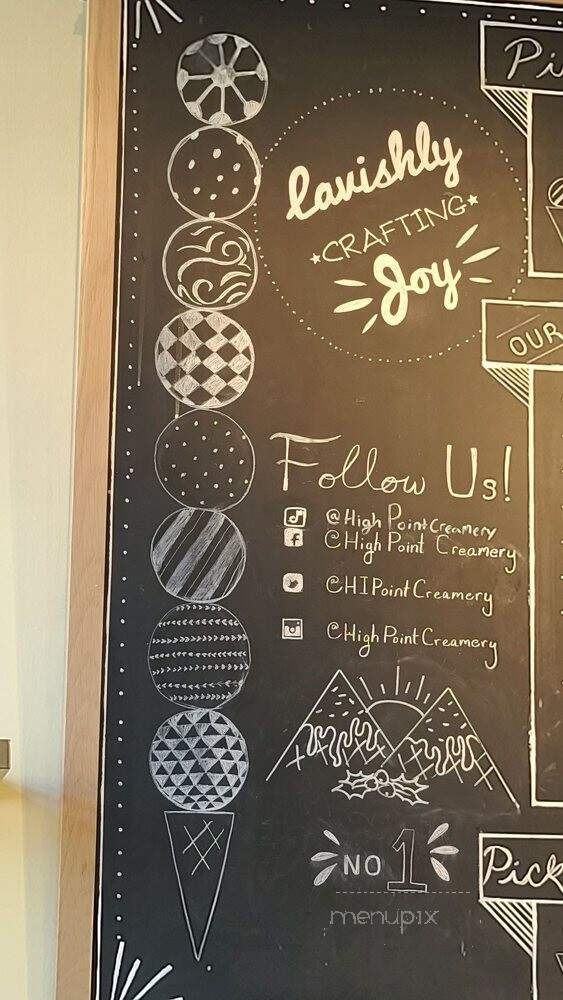 Pi
Lavishly
CRAFTING
Joy
OUR
Follow Us!
@High Point Creamery
@High Point Creamery
@HIPointCreamery
@HighPointCreamery
NO 1
Pick
menupix